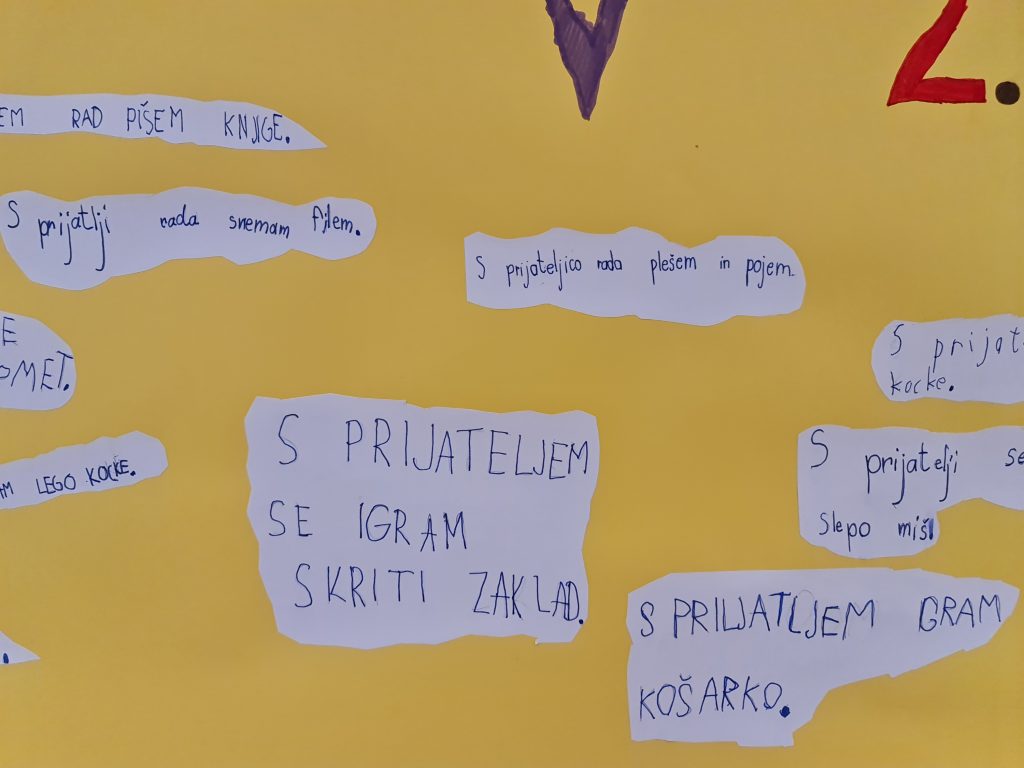 V 2.
EM RAD PIŠEM KNJIGE.
S prijatlji rada snemam fijlem.
S prijateljico rada plešem in pojem.
E
OMET.
S prijat
kocke.
AM LEGO KOCKE.
S PRIJATELJEM
SE IGRAM
SKRITI ZAKLAD.
S prijatelji se
slepo miši
S PRILJATLJEM GRAM
KOŠARKO.